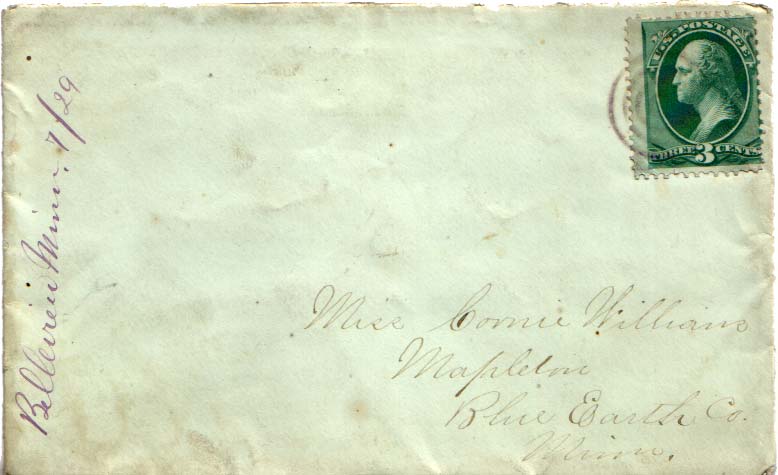 Belleview Minn. 7/29
U.S. POSTAGE
THREE 3 CENTS
Miss Connie Williams
Mapleton
Blue Earth Co.
Minn.